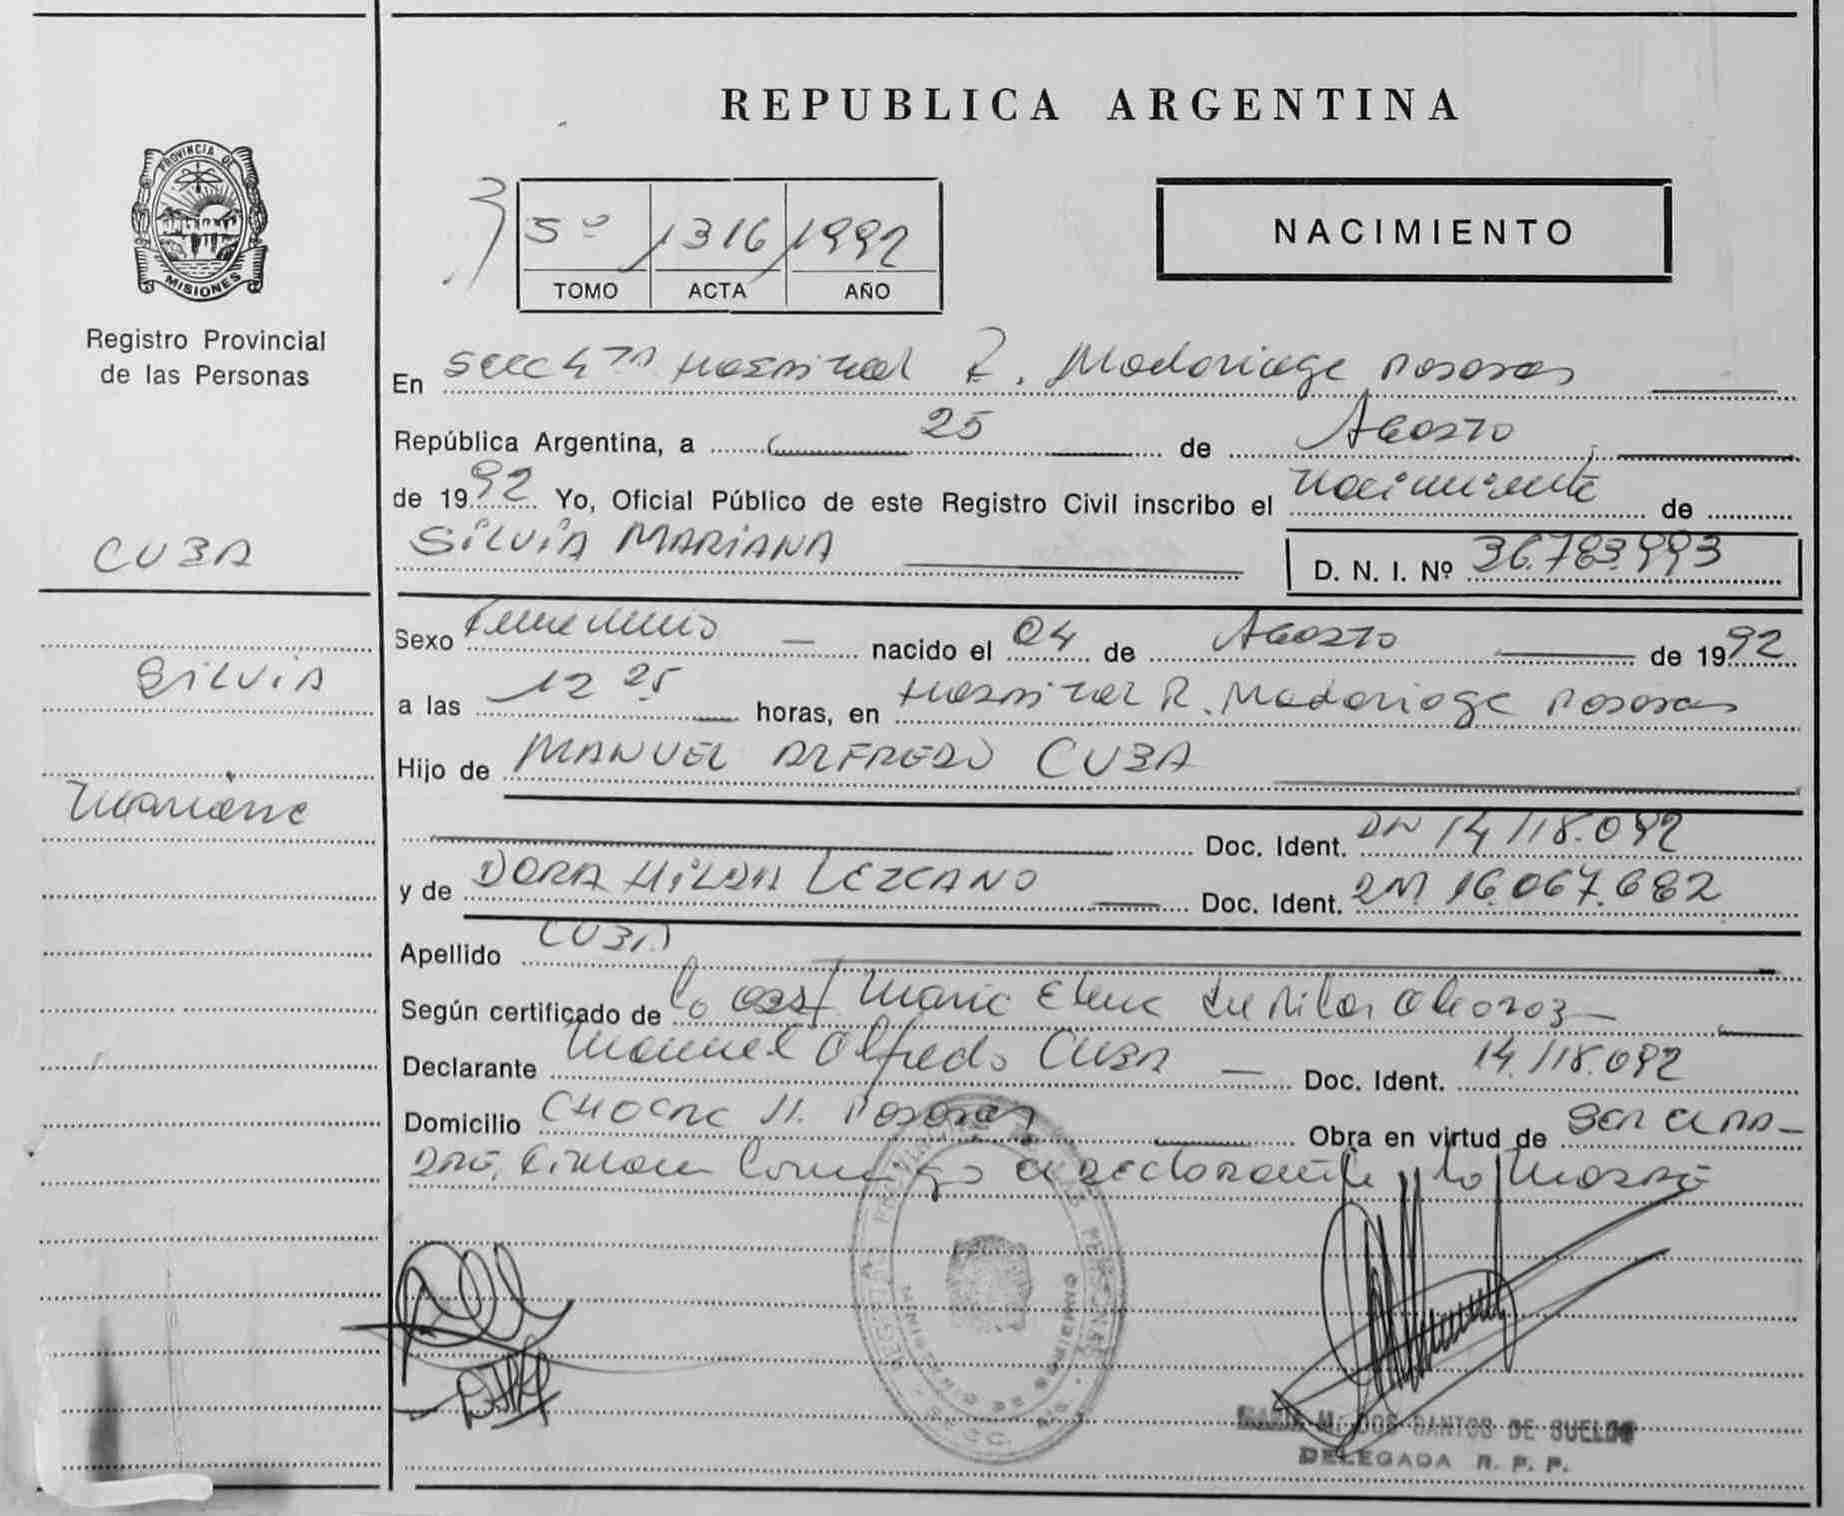 REPUBLICA ARGENTINA
PROVINCIA DE
MISIONES
Registro Provincial
de las Personas
5º 1316 1992
TOMO ACTA AÑO
NACIMIENTO
En Secc 4ta Hospital R. Madariaga Posadas
República Argentina, a 25 de Agosto
de 1992 Yo, Oficial Público de este Registro Civil inscribo el nacimiento de
CUBA
SILVIA MARIANA
D. N. I. Nº 36.783.993
Sexo Femenino nacido el 04 de Agosto de 1992
Silvia
a las 12 25 horas, en Hospital R. Madariaga Posadas
Hijo de MANUEL ALFREDO CUBA
Mariana
Doc. Ident. 14.118.092
y de DORA HILDA LEZCANO Doc. Ident. 16.067.682
Apellido CUBA
Según certificado de la Maria Elena
Declarante Manuel Alfredo CUBA Doc. Ident. 14.118.092
Domicilio Posadas Obra en virtud de
Firman Conmigo el declarante y la Madre
MARIA M. DOS SANTOS DE SUELDO
DELEGADA R. P. P.